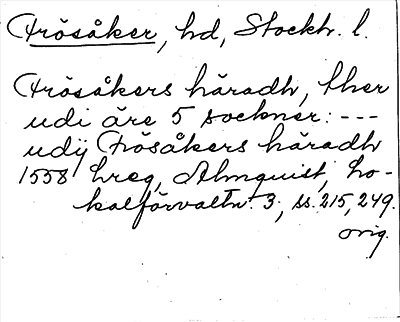 Frösåker, hd, Stockh. l.
Frösåkers häradh, ther
udi äre 5 sockner: ---
udij Frösåkers häradh
1558 hreg, Almquist, Lo-
kalförvaltn. 3, ss. 215, 249.
orig.